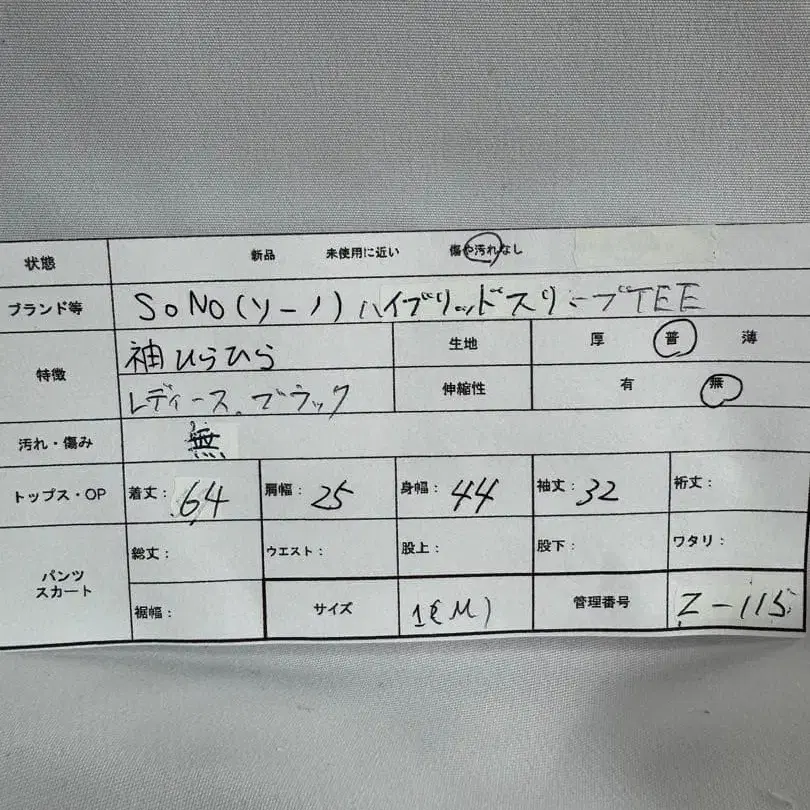 状態 新品 未使用に近い 傷や汚れなし
ブランド等 SoNo(ソーノ)ハイブリッドスリーブTEE
特徴 袖ひらひら 生地 厚 普 薄
レディース。ブラック 伸縮性 有 無
汚れ・傷み 無
トップス・OP 着丈: 64 肩幅: 25 身幅: 44 袖丈: 32 裄丈:
パンツ スカート 総丈: ウエスト: 股上: 股下: ワタリ:
裾幅: サイズ 1(M) 管理番号 Z-115